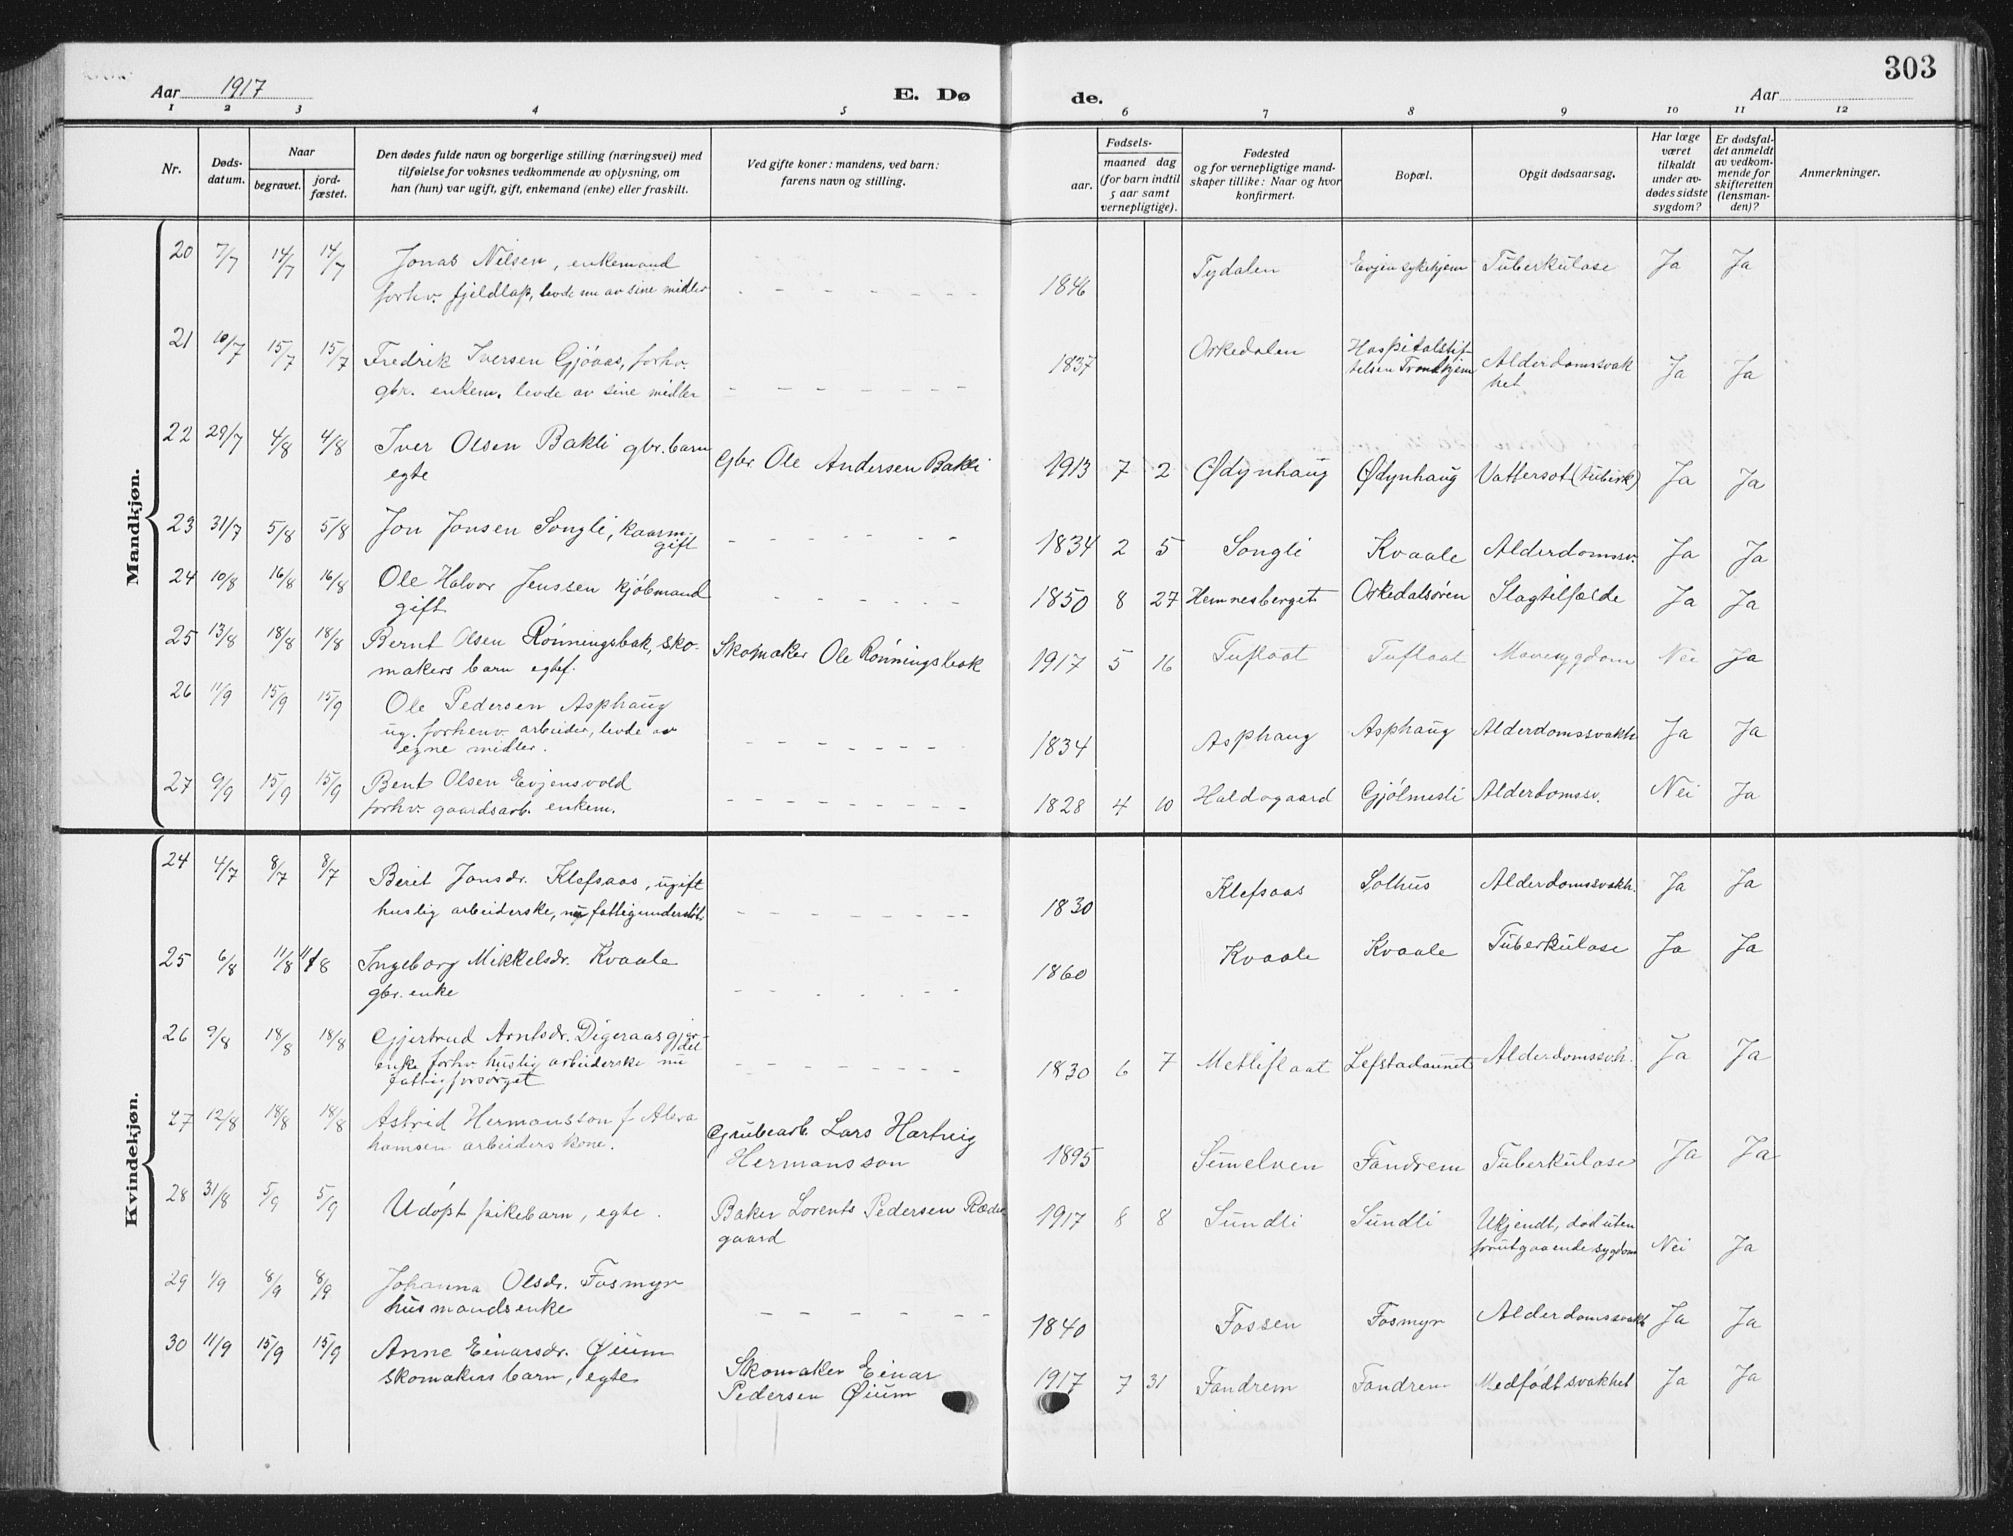 303
Aar 1917
E. Dø
de.
Aar
1 2 3 4 5 6 7 8 9 10 11 12
Nr.
Døds-
datum.
Naar
begravet.
jord-
fæstet.
Den dødes fulde navn og borgerlige stilling (næringsvei) med
tilføielse for voksnes vedkommende av oplysning, om
han (hun) var ugift, gift, enkemand (enke) eller fraskilt.
Ved gifte koner: mandens, ved barn:
farens navn og stilling.
Fødsels-
aar.
maaned dag
(for barn indtil
5 aar samt
vernepligtige).
Fødested
og for vernepligtige mand-
skaper tillike: Naar og hvor
konfirmert.
Bopæl.
Opgit dødsaarsag.
Har læge
været
tilkaldt
under av-
dødes sidste
sygdom?
Er dødsfal-
det anmeldt
av vedkom-
mende for
skifteretten
(lensman-
den)?
Anmerkninger.
Mandkjøn.
20 7/7 14/7 14/7 Jonas Nilsen, enkemand Tydalen Evjen sykehjem Tuberkulose Ja Ja
forhv. fjeldlap, levde nu av sine midler - - - - - - - - 1846
21 10/7 15/7 15/7 Fredrik Iversen Gjøaas, forhv. 1837 Orkedalen Hospitalstif-
telsen Trondhjem Alderdomssvak
het Ja Ja
gbr. enkem. levde av sine midler - - - - - - - -
22 29/7 4/8 4/8 Iver Olsen Bakli gbr. barn Gbr Ole Andersen Bakli 1913 7 2 Ødynhaug Ødynhaug Vattersot (tuberk) Ja Ja
egte
23 31/7 5/8 5/8 Jon Jonsen Songli, kaarm. - - - - - - - 1834 2 5 Songli Kvaale Alderdomssv. Ja Ja
gift
24 10/8 16/8 16/8 Ole Halvor Jenssen kjøbmand - - - - - - - 1850 8 27 Hemnesberget Orkedalsøren Slagtilfælde Ja Ja
gift
25 13/8 18/8 18/8 Bernt Olsen Rønningsbak, sko- Skomaker Ole Rønningsbak 1917 5 16 Tuflaat Tuflaat Mavesygdom Nei Ja
makers barn egtef.
26 11/9 15/9 15/9 Ole Pedersen Asphaug
ug. forhenv. arbeider, levde av - - - - - - - - 1834 Asphaug Asphaug Alderdomssvakh. Ja Ja
egne midler.
27 9/9 15/9 15/9 Bent Olsen Evjensvold
forhv. gaardsarb. enkem. - - - - - - - - - 1828 4 10 Haldogaard Gjølmesli Alderdomssv. Nei Ja
Kvindekjøn.
24 4/7 8/7 8/7 Berit Jonsdr. Klefsaas, ugift Klefsaas Solhus Alderdomssvakh. Ja Ja
huslig arbeiderske, nu fattigunderstøt. - - - - - - - - 1830
25 6/8 11/8 11/8 Ingeborg Mikkelsdr. Kvaale Kvaale Kvaale Tuberkulose Ja Ja
gbr. enke - - - - - - - 1860
26 9/8 18/8 18/8 Gjertrud Arntsdr. Digeraasgjer-
det
enke forhv. huslig arbeiderske nu - - - - - - - - 1830 6 7 Metliflaat Lefstadaunet Alderdomssvh. Ja Ja
fattigforsørget
27 12/8 18/8 18/8 Astrid Hermansson f Abra Grubearb. Lars Hartvig
hamsen arbeiders kone. Hermansson 1895 Sumelven Fandrem Tuberkulose Ja Ja
28 31/8 5/9 5/9 Udøpt pikebarn, egte. Baker Lorents Pedersen Rødde
gaard 1917 8 8 Sundli Sundli Ukjendt, død uten
forutgaaende sygdom Nei Ja
29 1/9 8/9 8/9 Johanna Olsdr. Fosmyr
husmandsenke - - - - - - - 1840 Fossen Fosmyr Alderdomssvakh. Ja Ja
30 11/9 15/9 15/9 Anne Einarsdr. Øium Skomaker Einar
skomakers barn, egte Pedersen Øium 1917 7 31 Fandrem Fandrem Medfødt svakhet Ja Ja